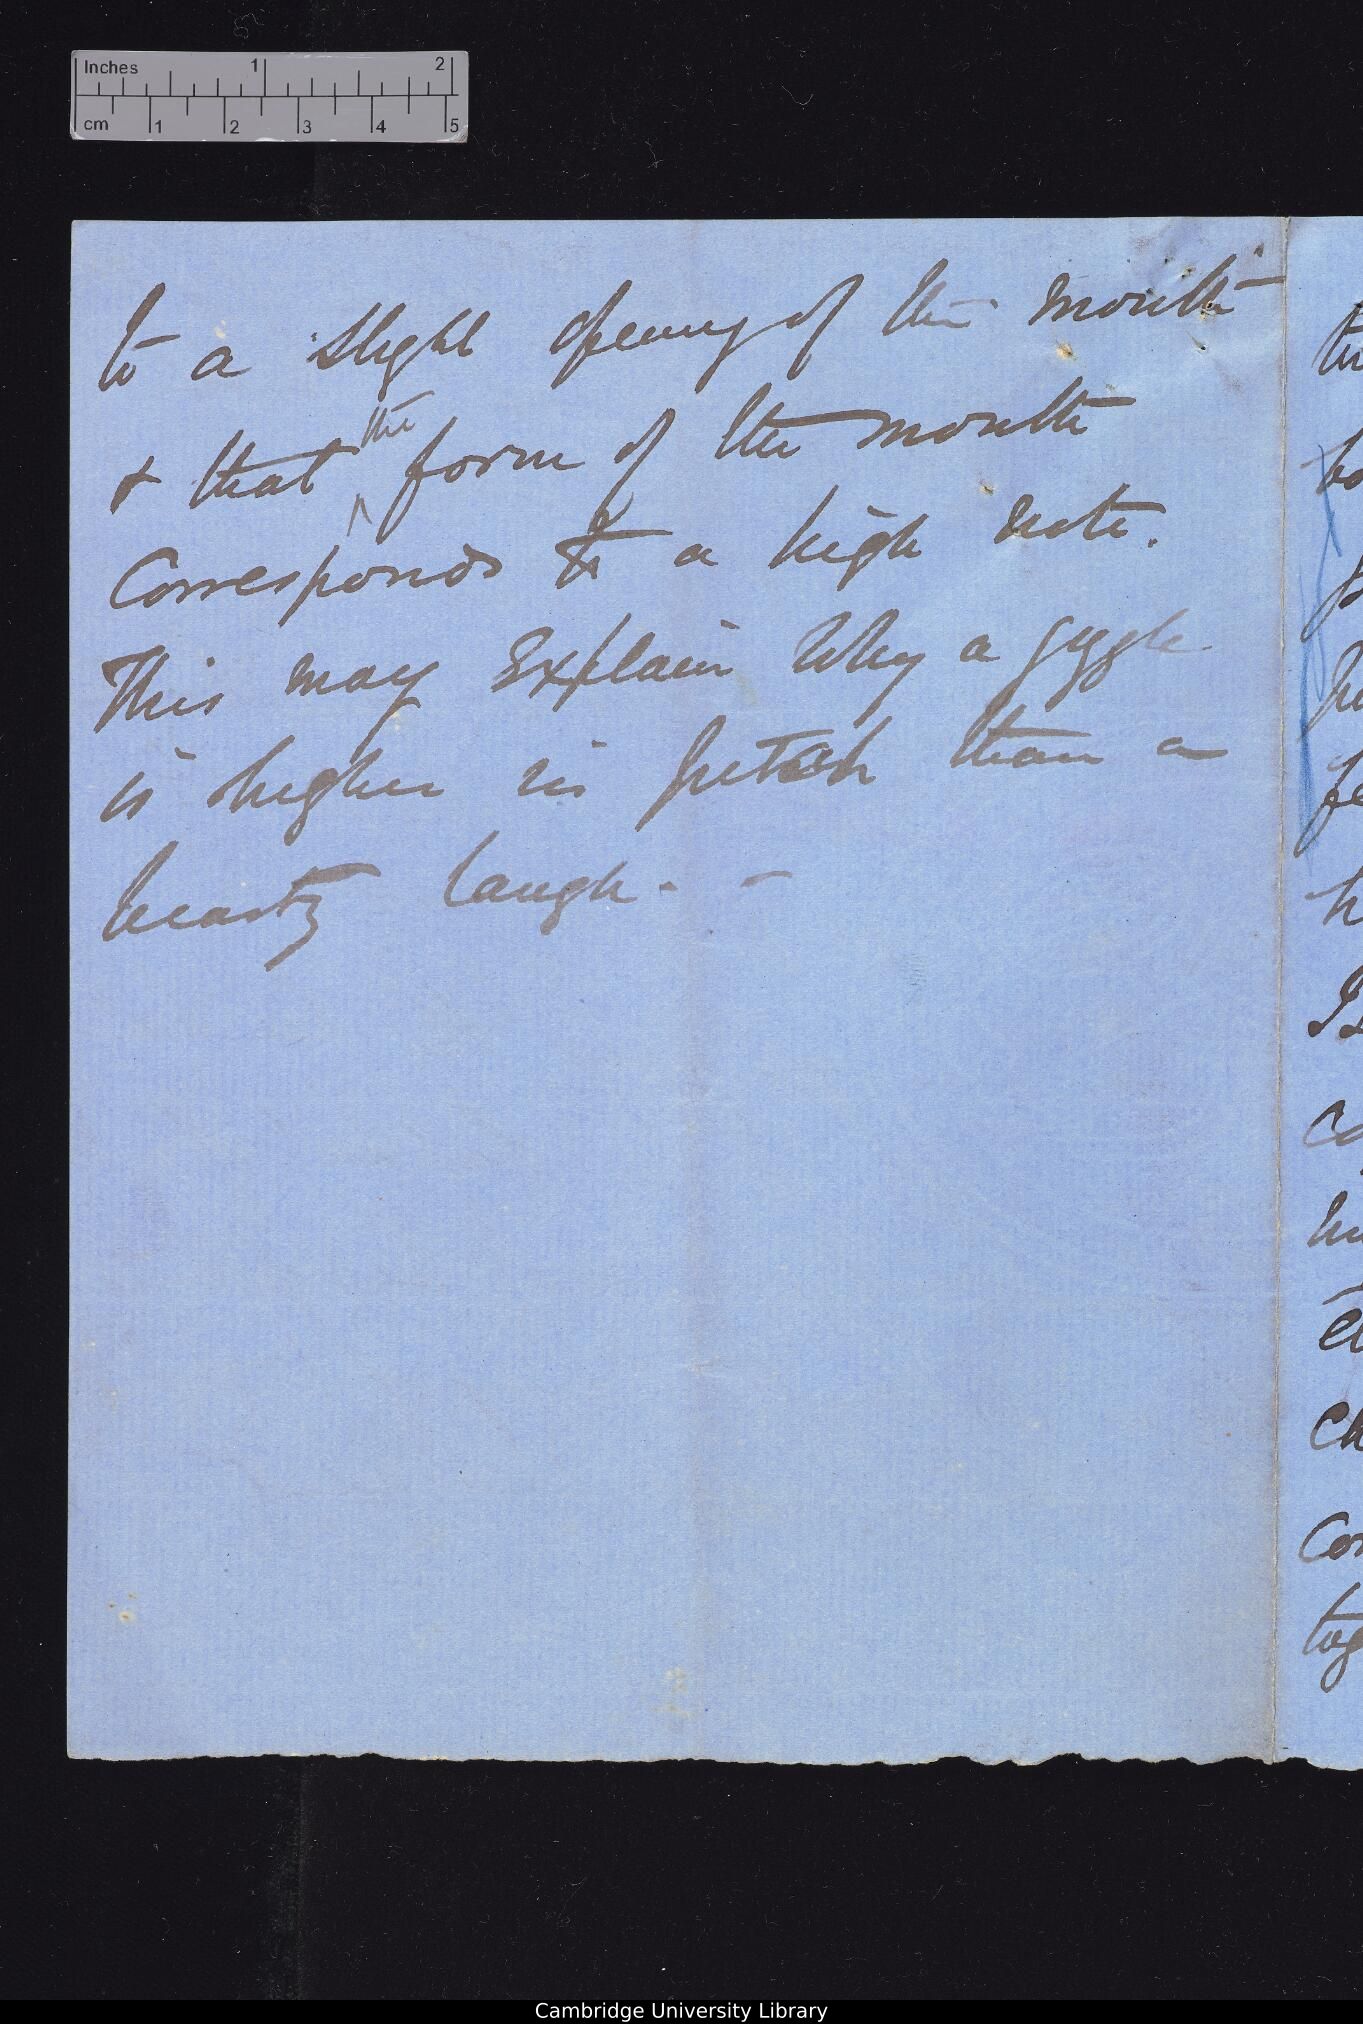 Inches 1 2
cm 1 2 3 4 5
to a slight opening of the mouth
& that the form of the mouth
corresponds to a high note.
This may explain why a giggle
is higher in pitch than a
hearty laugh. –
Cambridge University Library